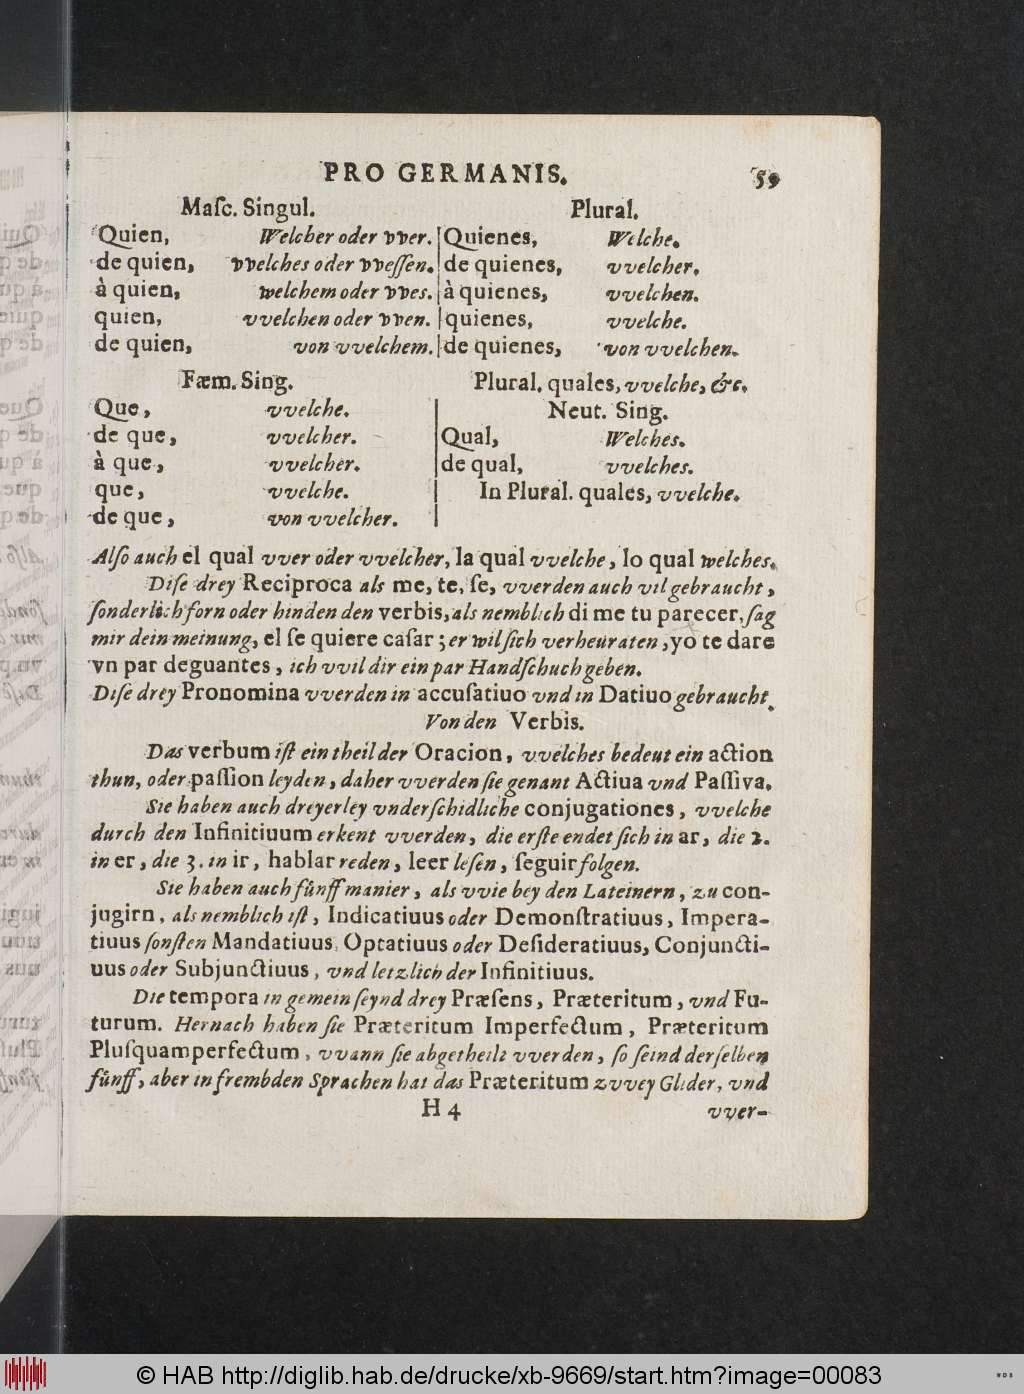 PRO GERMANIS. 59
Maſc. Singul. Plural.
Quien, Welcher oder vver. Quienes, Welche.
de quien, vvelches oder vveſſen. de quienes, vvelcher.
à quien, welchem oder vves. à quienes, vvelchen.
quien, vvelchen oder vven. quienes, vvelche.
de quien, von vvelchem. de quienes, von vvelchen.
Fæm. Sing. Plural. quales, vvelche, &c.
Que, vvelche. Neut. Sing.
de que, vvelcher. Qual, Welches.
à que, vvelcher. de qual, vvelches.
que, vvelche. In Plural. quales, vvelche.
de que, von vvelcher.
Alſo auch el qual vver oder vvelcher, la qual vvelche, lo qual welches.
Diſe drey Reciproca als me, te, ſe, vverden auch vil gebraucht,
ſonderlich forn oder hinden den verbis, als nemblich di me tu parecer, ſag
mir dein meinung, el ſe quiere caſar; er wil ſich verheuraten, yo te dare
vn par deguantes, ich vvil dir ein par Handſchuch geben.
Diſe drey Pronomina vverden in accuſatiuo vnd in Datiuo gebraucht.
Von den Verbis.
Das verbum iſt ein theil der Oracion, vvelches bedeut ein action
thun, oder paſſion leyden, daher vverden ſie genant Actiua vnd Paſſiva.
Sie haben auch dreyerley vnderſchidliche conjugationes, vvelche
durch den Infinitiuum erkent vverden, die erſte endet ſich in ar, die 2.
in er, die 3. in ir, hablar reden, leer leſen, ſeguir folgen.
Sie haben auch fůnff manier, als vvie bey den Lateinern, zu con-
jugirn, als nemblich iſt, Indicatiuus oder Demonſtratiuus, Impera-
tiuus ſonſten Mandatiuus, Optatiuus oder Deſideratiuus, Conjuncti-
uus oder Subjunctiuus, vnd letzlich der Infinitiuus.
Die tempora in gemein ſeynd drey Præſens, Præteritum, vnd Fu-
turum. Hernach haben ſie Præteritum Imperfectum, Præteritum
Pluſquamperfectum, vvann ſie abgetheilt vverden, ſo ſeind derſelben
fůnff, aber in frembden Sprachen hat das Præteritum zvvey Glider, vnd
H 4 vver-
© HAB http://diglib.hab.de/drucke/xb-9669/start.htm?image=00083